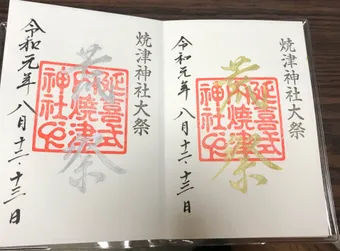 焼津神社大祭
荒祭
延喜式
内焼津
神社
令和元年 八月十二・十三日
焼津神社大祭
荒祭
延喜式
内焼津
神社
令和元年 八月十二・十三日